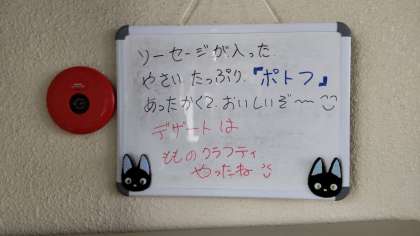 ソーセージが入った
やさいたっぷり『ポトフ』
あったかくておいしいぞ〜
デザートは
もものクラフティ
やったね